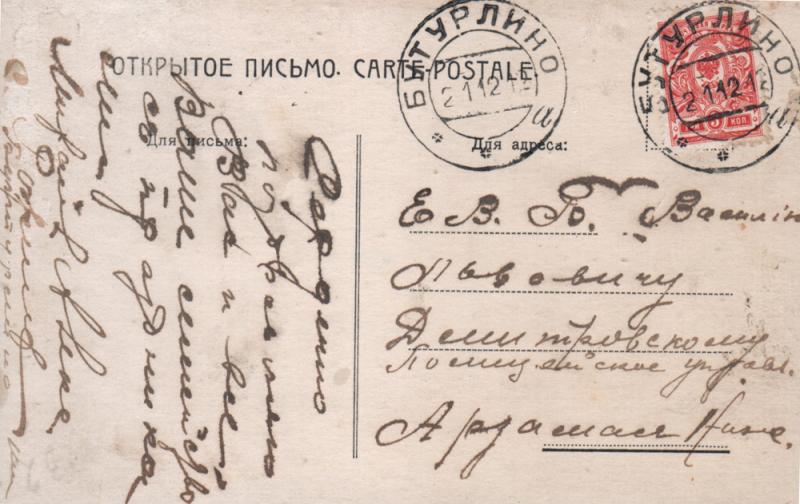 ОТКРЫТОЕ ПИСЬМО. CARTE-POSTALE.
БУТУРЛИНО
2 1 12 1
а
БУТУРЛИНО
2 1 12 1
а
3 КОП
Для письма:
Для адреса:
Е. В. Б. Василiю
Львовичу
Дмитровскому
Полицейское управл.
Арзамас Ниж.
Сердечно
поздравляю
Вас и все
Ваше семейство
съ праздника
ми